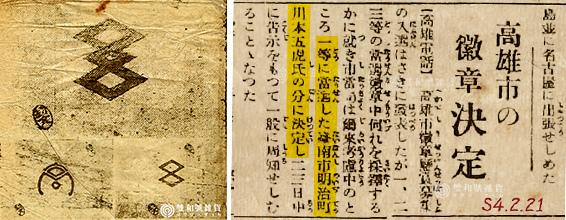 島並に名古屋に出張せしめた
高雄市の
徽章決定
【高雄電話】高雄市徽章懸賞募集
の入選はさきに發表したが一、二、
三等の當選徽章中何れを採擇する
かに就き市當局は爾來考慮中のと
ころ一等に當選した臺南市明治町
川本五虎氏の分に決定し二三日中
に告示をもつて一般に周知せしむ
ることゝなつた
S4.2.21
雙和號雜貨
雙和號雜貨